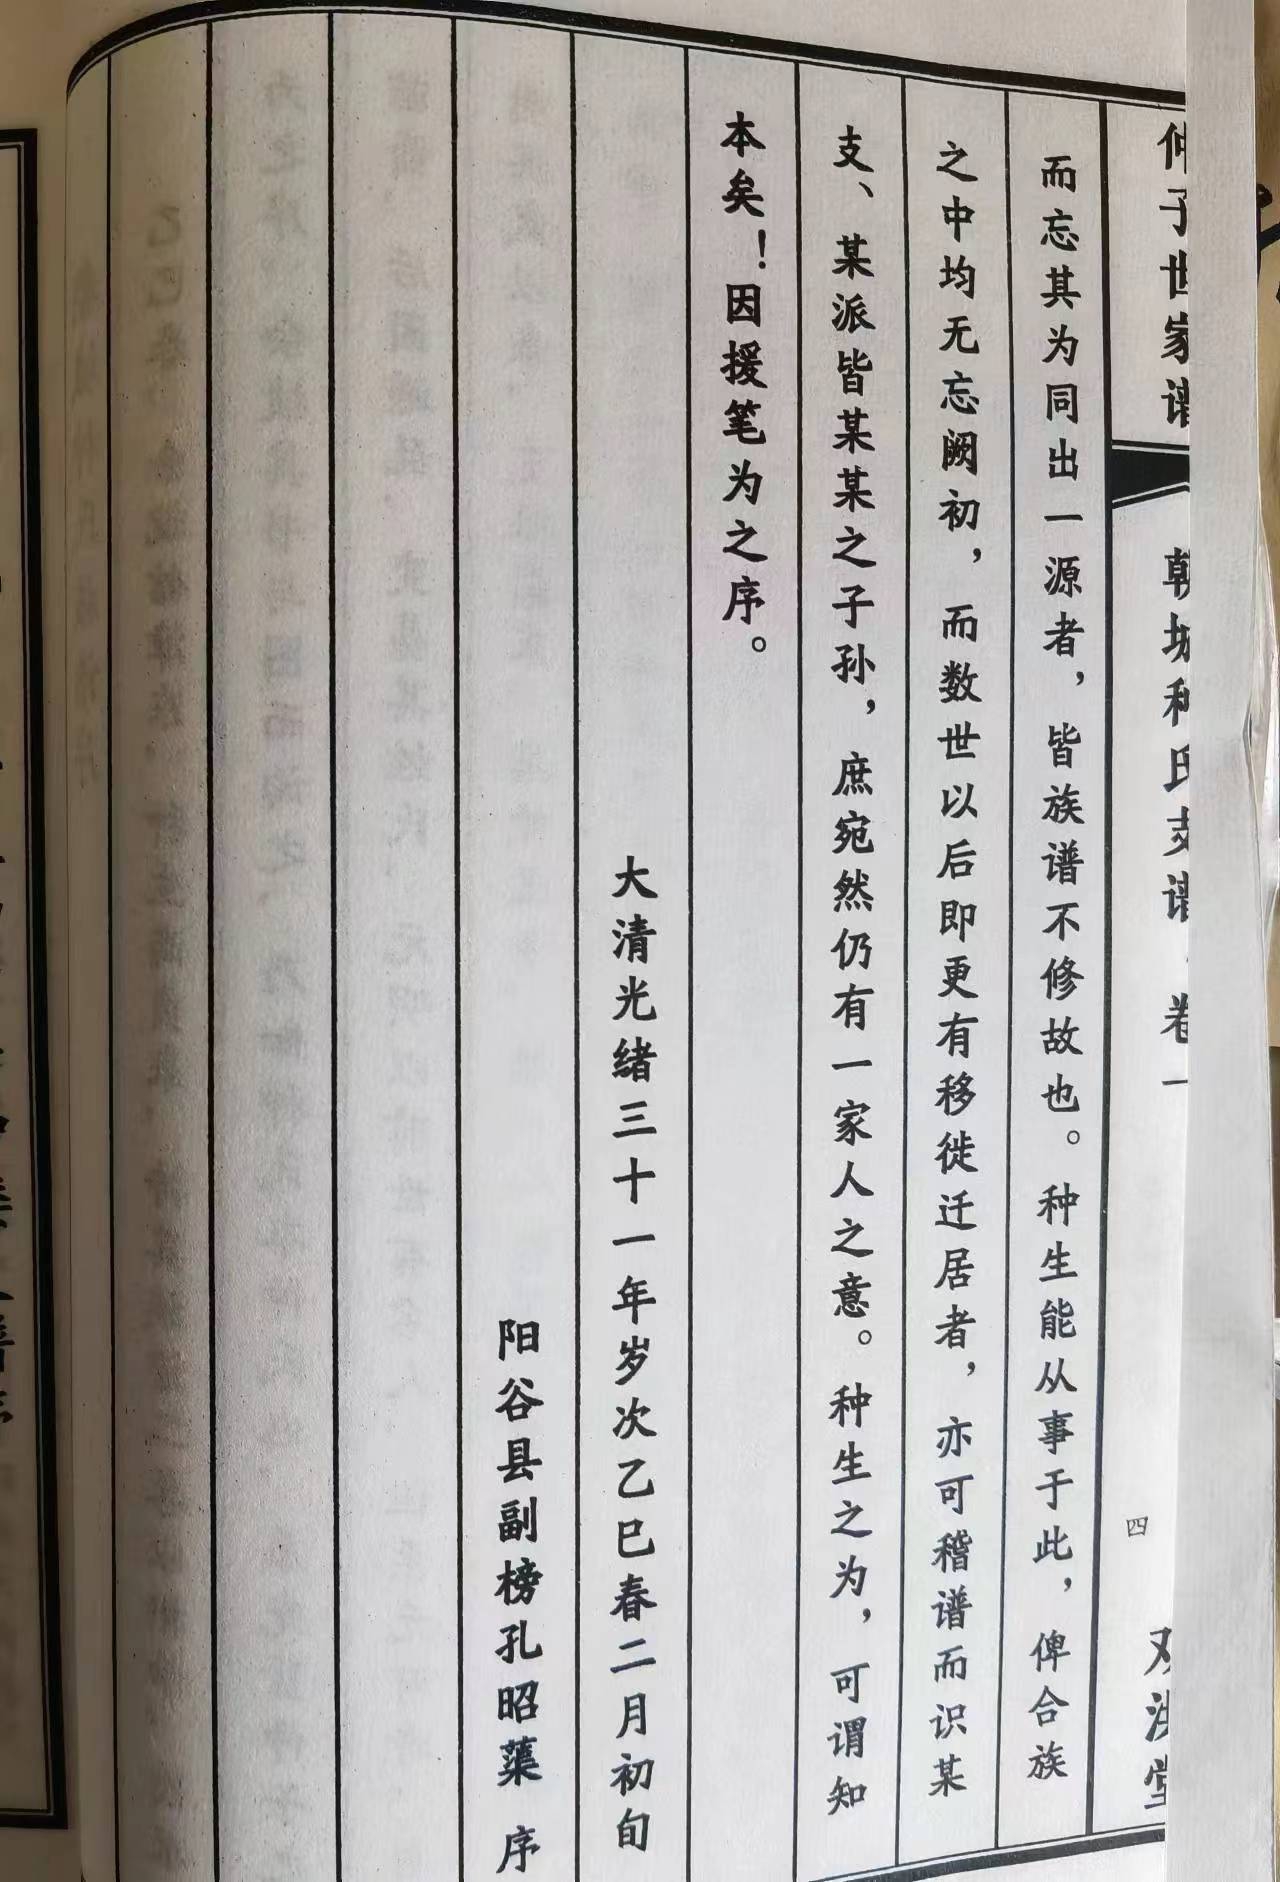 仲子世家谱
朝城种氏支谱 卷一
四
而忘其为同出一源者，皆族谱不修故也。种生能从事于此，俾合族
之中均无忘阙初，而数世以后即更有移徙迁居者，亦可稽谱而识某
支、某派皆某某之子孙，庶宛然仍有一家人之意。种生之为，可谓知
本矣！因援笔为之序。
大清光绪三十一年岁次乙巳春二月初旬
阳谷县副榜孔昭蕖 序